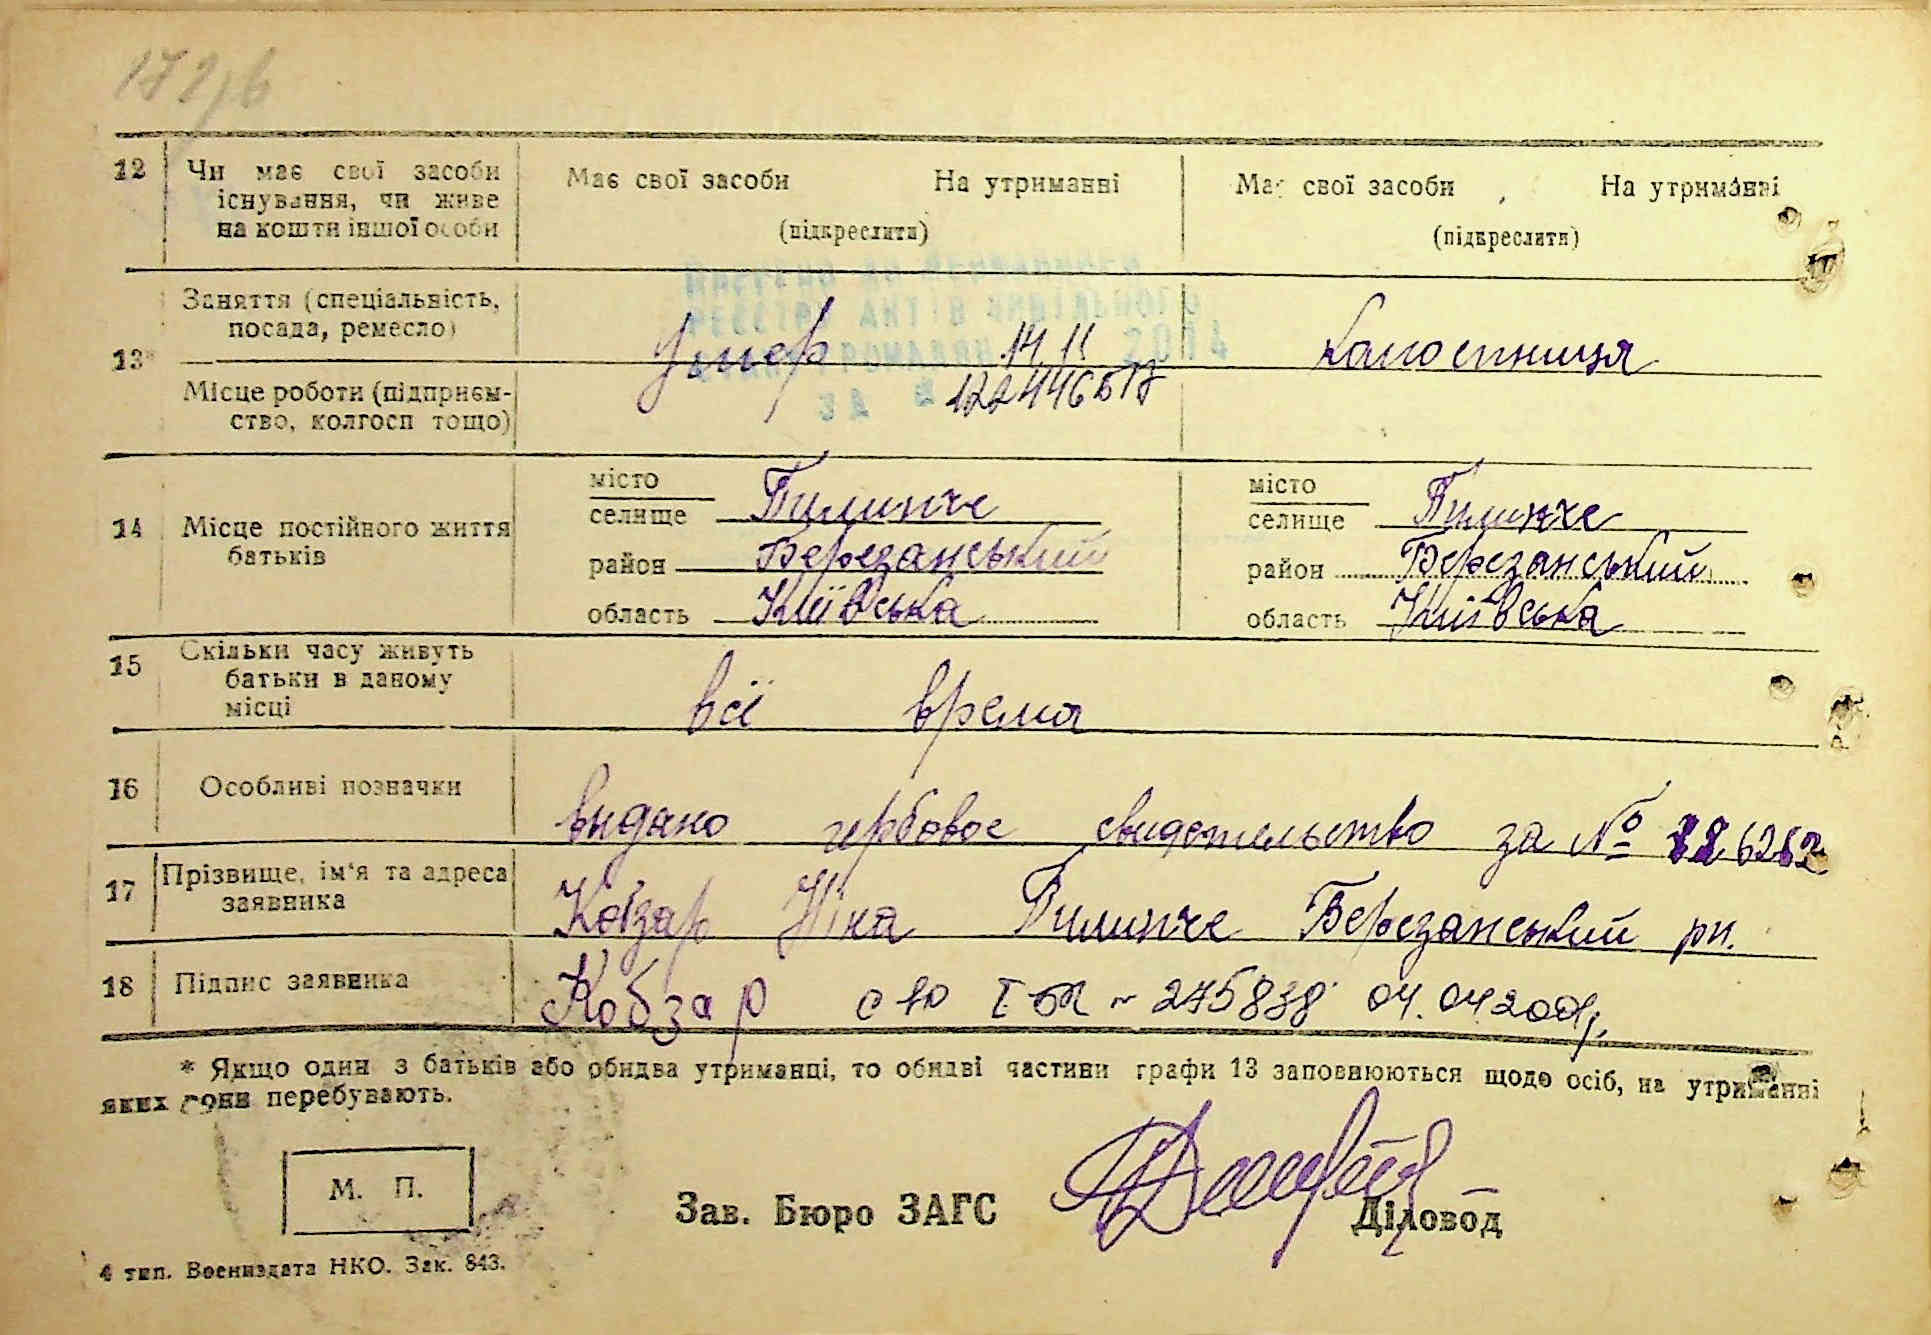 12 Чи має свої засоби існування, чи живе на кошти іншої особи
Має свої засоби На утриманні
(підкреслити)
Має свої засоби На утриманні
(підкреслити)
Внесено до державного
реєстру актів цивільного
стану громадян 14 11 2014
за № 12244657
13* Заняття (спеціальність, посада, ремесло)
Умер
колгоспниця
Місце роботи (підприємство, колгосп тощо)
14 Місце постійного життя батьків
місто
селище Пилипче
район Березанський
область Київська
місто
селище Пилипче
район Березанський
область Київська
15 Скільки часу живуть батьки в даному місці
всё время
16 Особливі позначки
видано гербовое свидетельство за №
17 Прізвище, ім'я та адреса заявника
Кобзар Ніка Пилипче Березанський рн.
18 Підпис заявника
Кобзар 275838 04.04.2001р.
* Якщо один з батьків або обидва утриманці, то обидві частини графи 13 заповнюються щодо осіб, на утриманні
яких вони перебувають.
М. П.
Зав. Бюро ЗАГС
Діловод
4 тип. Воениздата НКО. Зак. 843.